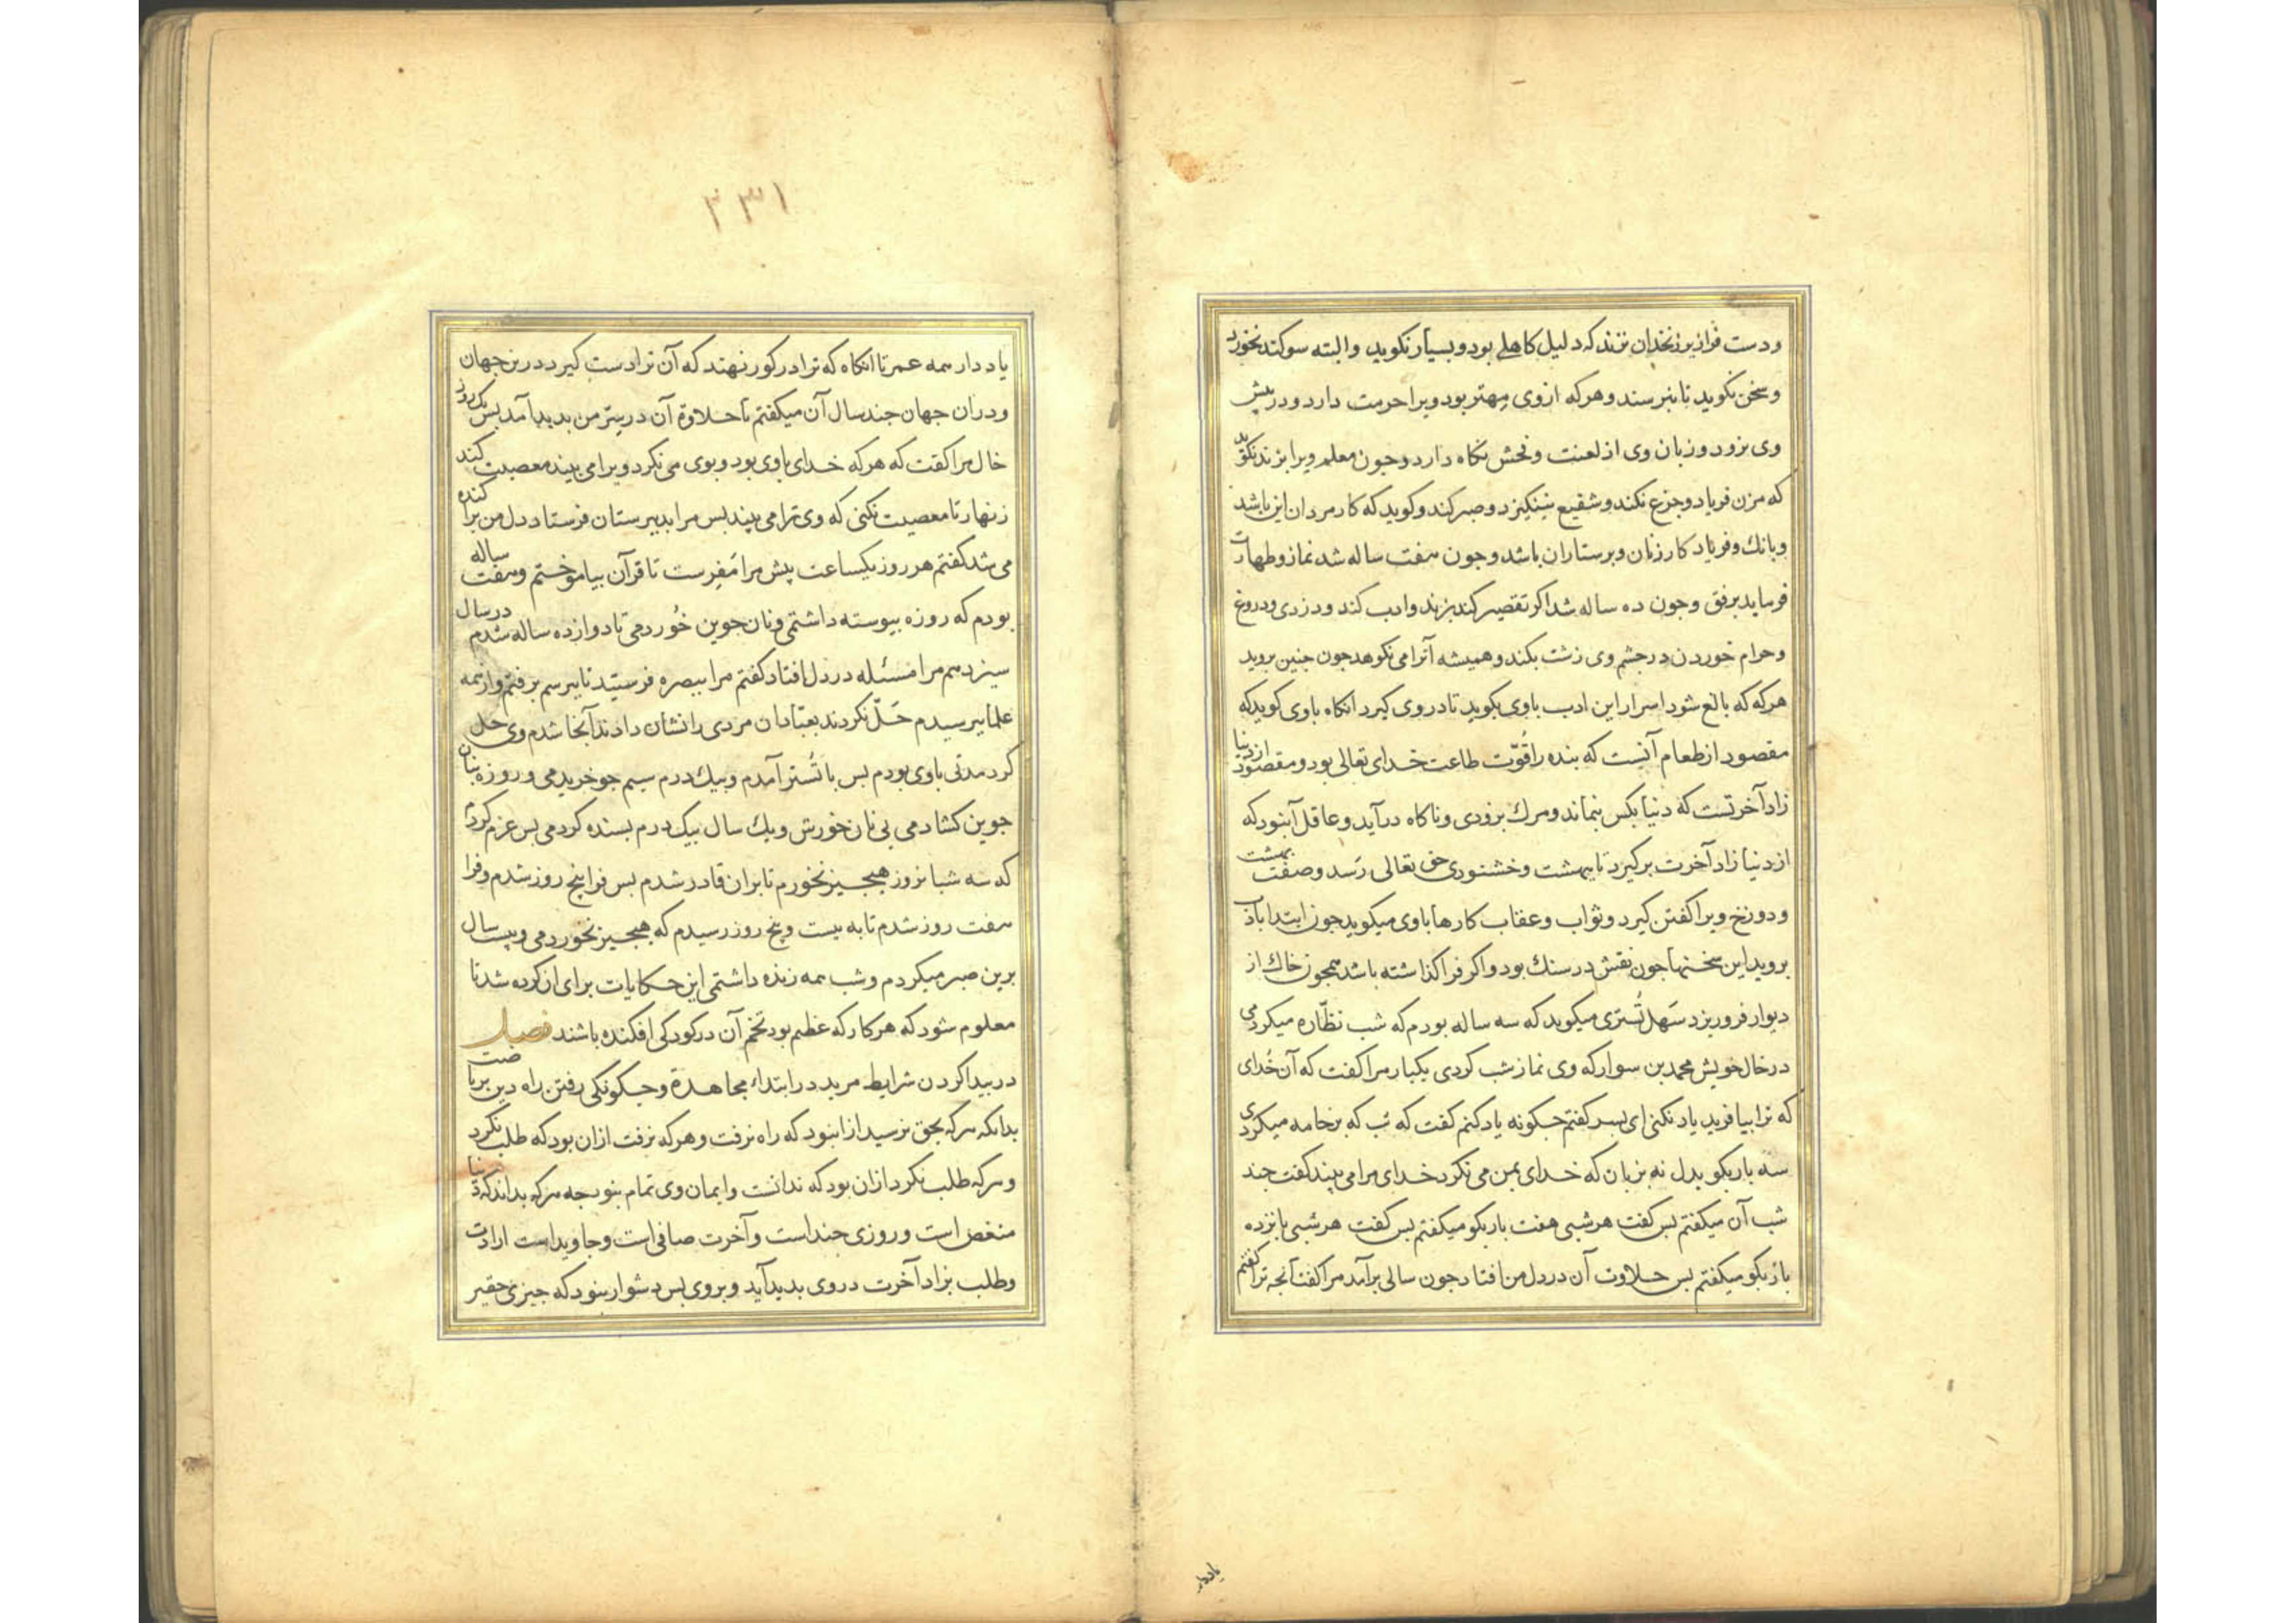 ودست فرا زیر زنخدان نزند که دلیل کاهلی بود و بسیار نکوید والبته سوکند نخورد
وسخن نکوید تا نپرسند وهرکه ازوی مهتر بود ویرا حرمت دارد ودر پیش
وی نرود وزبان وی از لعنت وفحش نکاه دارد وجون معلم ویرا بزند بکوید
که مزن فریاد وجزع نکند وشفیع نینکیزد وصبر کند وکوید که کار مردان این باشد
وبانك وفریاد کار زنان وپرستاران باشد وجون هفت ساله شد نماز وطهارت
فرماید برفق وجون ده ساله شد اکر تقصیر کند بزند وادب کند ودزدی ودروغ
وحرام خوردن در جشم وی زشت بکند وهمیشه آنرا می نکوهد جون جنین بروید
هرکه که بالغ شود اسرار این ادب باوی بکوید تا در وی کیرد انکاه باوی کوید که
مقصود از طعام آنست که بنده را قُوّت طاعت خدای تعالی بود ومقصود از دنیا
زاد آخرتست که دنیا بکس بنماند ومرك بزودی وناکاه درآید وعاقل آنبود که
از دنیا زاد آخرت برکیرد تا ببهشت وخشنودی حق تعالی رسد وصفت بهشت
ودوزخ ویرا کفتن کیرد وثواب وعقاب کارها باوی میکوید جون ابتدا بادب
بروید این سخنها جون نقش در سنك بود واکر فرا کذاشته باشد همجون خاك از
دیوار فروریزد سَهل تُستری میکوید که سه ساله بودم که شب نظّاره میکردمی
در خال خویش محمد بن سوار که وی نماز شب کردی یکبار مرا کفت که آن خُدای
که ترا بیافرید یاد نکنی ای پسر کفتم جکونه یاد کنم کفت که شب که بر جامه میکردی
سه بار بکو بدل نه بزبان که خدای بمن می نکرد خدای مرا می بیند کفت جند
شب آن میکفتم پس کفت هر شبی هفت بار بکو میکفتم پس کفت هر شبی پانزده
بار بکو میکفتم پس حلاوت آن در دل من افتاد جون سالی برآمد مرا کفت آنجه ترا کفتم
یاددار
۲۳۱
یاد دار همه عمر تا انکاه که ترا در کور نهند که آن ترا دست کیرد درین جهان
ودران جهان جند سال آن میکفتم تا حلاوة آن در سِرّ من بدید آمد پس یك روز
خال مرا کفت که هرکه خدای باوی بود وبوی می نکرد ویرا می بیند معصیت کند
زنهار تا معصیت نکنی که وی ترا می بیند پس مرا بدبیرستان فرستاد دل من پراکنده
می شد کفتم هر روز یکساعت پیش مرا مَفِرست تا قرآن بیاموختم وهفت ساله
بودم که روزه پیوسته داشتمی ونان جوین خُوردمی تا دوازده ساله شدم در سال
سیزدهم مرا مسئله در دل افتاد کفتم مرا ببصره فرستید تا بپرسم برفتم واز همه
علما پرسیدم حَلّ نکردند بعبّادان مردی را نشان دادند آنجا شدم وی حل
کرد مدتی باوی بودم پس با تُستر آمدم وبیك درم سیم جو خریدمی وروزه بنان
جوین کشادمی بی نان خورش ویك سال بیك درم بسنده کردمی پس عزم کردم
که سه شبانروز هیجیز نخورم تا بران قادر شدم پس فرا پنج روز شدم وفرا
هفت روز شدم تا به بیست وپنج روز رسیدم که هیجیز نخوردمی وبیست سال
برین صبر میکردم وشب همه زنده داشتمی این حکایات برای ان کرده شد تا
معلوم شود که هرکار که عظیم بود تخم آن در کودکی افکنده باشند فصل
در پیدا کردن شرایط مرید در ابتداء مجاهدة وجکونکی رفتن راه دین بریاضت
بدانکه هرکه بحق نرسید ازانبود که راه نرفت وهرکه نرفت ازان بود که طلب نکرد
وهرکه طلب نکرد ازان بود که ندانست وایمان وی تمام نبود جه هرکه بداند که دنیا
منغص است وروزی جند است وآخرت صافی است وجاوید است ارادت
وطلب بزاد آخرت در وی بدید آید وبروی بس دشوار نبود که جیزی حقیر